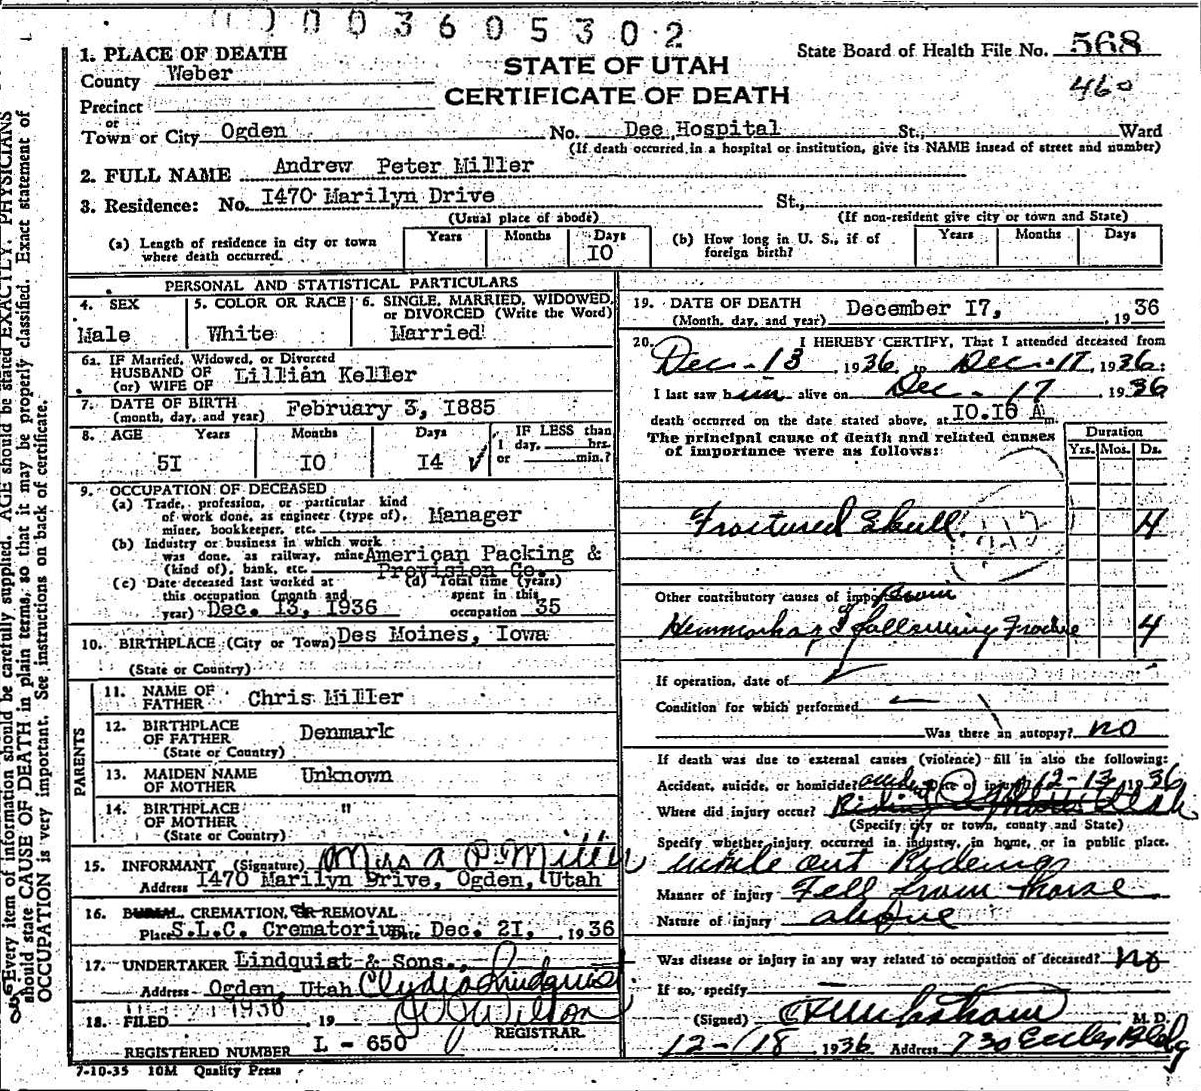 0003605302
State Board of Health File No. 568
460
STATE OF UTAH
CERTIFICATE OF DEATH
1. PLACE OF DEATH
County Weber
Precinct
or
Town or City Ogden No. Dee Hospital St., Ward
(If death occurred in a hospital or institution, give its NAME insead of street and number)
2. FULL NAME Andrew Peter Miller
3. Residence: No. 1470 Marilyn Drive St.,
(Usual place of abode) (If non-resident give city or town and State)
(a) Length of residence in city or town where death occurred. Years Months Days 10
(b) How long in U. S., if of foreign birth? Years Months Days
PERSONAL AND STATISTICAL PARTICULARS
4. SEX Male
5. COLOR OR RACE White
6. SINGLE, MARRIED, WIDOWED, or DIVORCED (Write the Word) Married
6a. IF Married, Widowed, or Divorced
HUSBAND OF Lillian Keller
(or) WIFE OF
7. DATE OF BIRTH (month, day, and year) February 3, 1885
8. AGE Years 51 Months 10 Days 14 IF LESS than 1 day, hrs. or min.?
9. OCCUPATION OF DECEASED
(a) Trade, profession, or particular kind of work done, as engineer (type of), miner, bookkeeper, etc. Manager
(b) Industry or business in which work was done, as railway, mine (kind of), bank, etc. American Packing & Provision Co.
(c) Date deceased last worked at this occupation (month and year) Dec. 13, 1936
(d) Total time (years) spent in this occupation 35
10. BIRTHPLACE (City or Town) Des Moines, Iowa
(State or Country)
PARENTS
11. NAME OF FATHER Chris Miller
12. BIRTHPLACE OF FATHER (State or Country) Denmark
13. MAIDEN NAME OF MOTHER Unknown
14. BIRTHPLACE OF MOTHER (State or Country) "
15. INFORMANT (Signature) Mrs A P Miller
Address 1470 Marilyn Drive, Ogden, Utah
16. BURIAL, CREMATION, OR REMOVAL
Place S.L.C. Crematorium Date Dec. 21, 1936
17. UNDERTAKER Lindquist & Sons.,
Address Ogden, Utah Clyde Lindquist
18. FILED 21 1936 19 Wilson
REGISTRAR
REGISTERED NUMBER L - 650
7-10-35 10M Quality Press
19. DATE OF DEATH (Month, day, and year) December 17, 1936
20. I HEREBY CERTIFY, That I attended deceased from
Dec - 13, 1936, to Dec - 17, 1936;
I last saw him alive on Dec - 17, 1936
death occurred on the date stated above, at 10.16 A m.
The principal cause of death and related causes of importance were as follows:
Duration
Yrs. Mos. Ds.
Fractured Skull 4
Other contributory causes of importance:
Hemmorhage following Fracture 4
If operation, date of
Condition for which performed
Was there an autopsy? no
If death was due to external causes (violence) fill in also the following:
Accident, suicide, or homicide? accident Date of injury 12-13 1936
Where did injury occur? Riding Utah
(Specify city or town, county and State)
Specify whether injury occurred in industry, in home, or in public place.
while out Rideing
Manner of injury Fell from horse
Nature of injury above
Was disease or injury in any way related to occupation of deceased? no
If so, specify
(Signed) M. D.
12-18, 1936 Address 730 Eccles Bldg
Every item of information should be carefully supplied. AGE should be stated EXACTLY. PHYSICIANS
should state CAUSE OF DEATH in plain terms, so that it may be properly classified. Exact statement of
OCCUPATION is very important. See instructions on back of certificate.